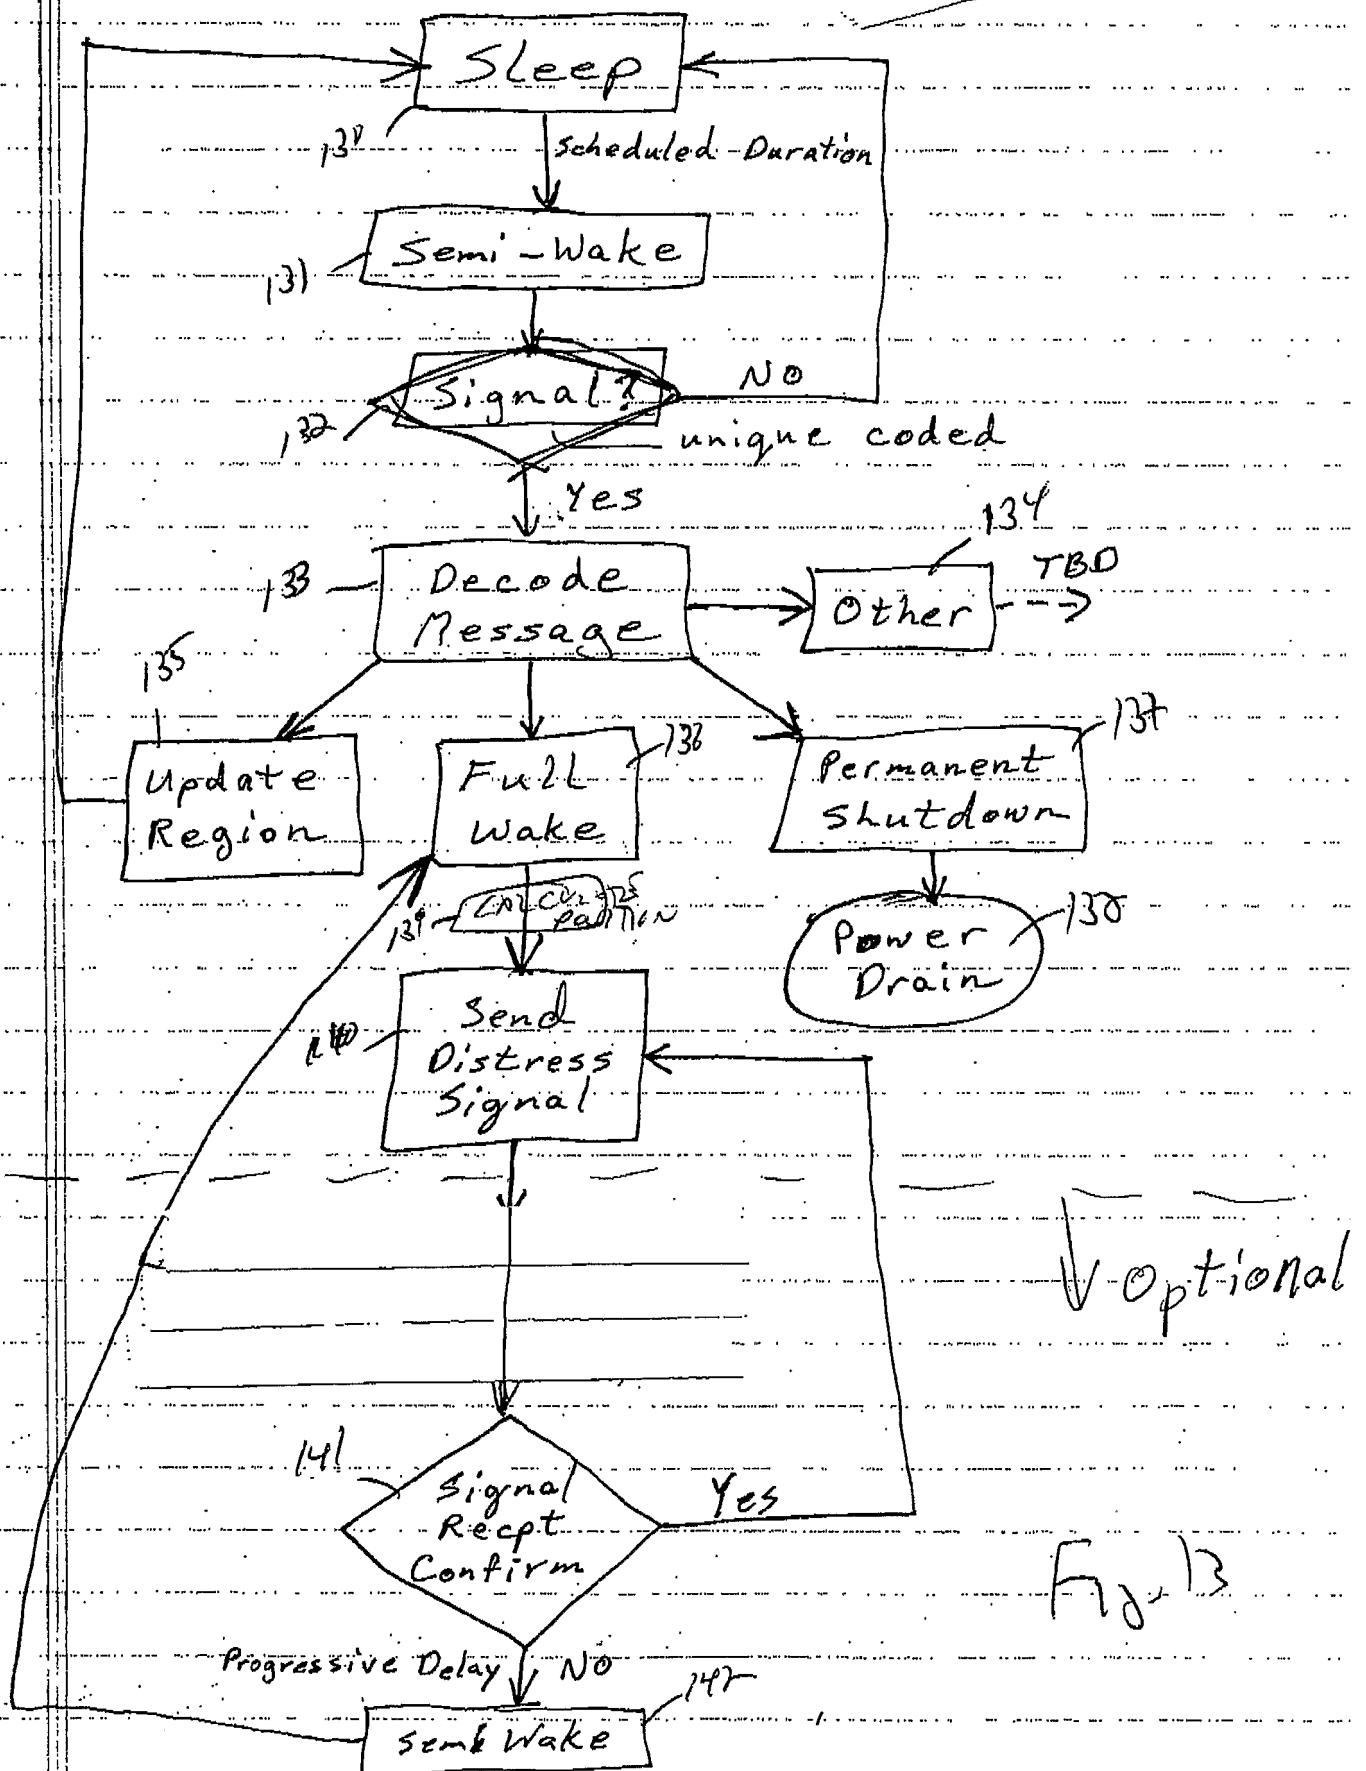 Sleep
130
Scheduled Duration
Semi-Wake
131
Signal?
NO
132
unique coded
Yes
134
133
Decode
Message
Other
TBD
135
Update
Region
136
Full
Wake
137
Permanent
Shutdown
139
138
Power
Drain
140
Send
Distress
Signal
Optional
141
Signal
Recpt
Confirm
Yes
Fig. 13
Progressive Delay
NO
142
Semi Wake